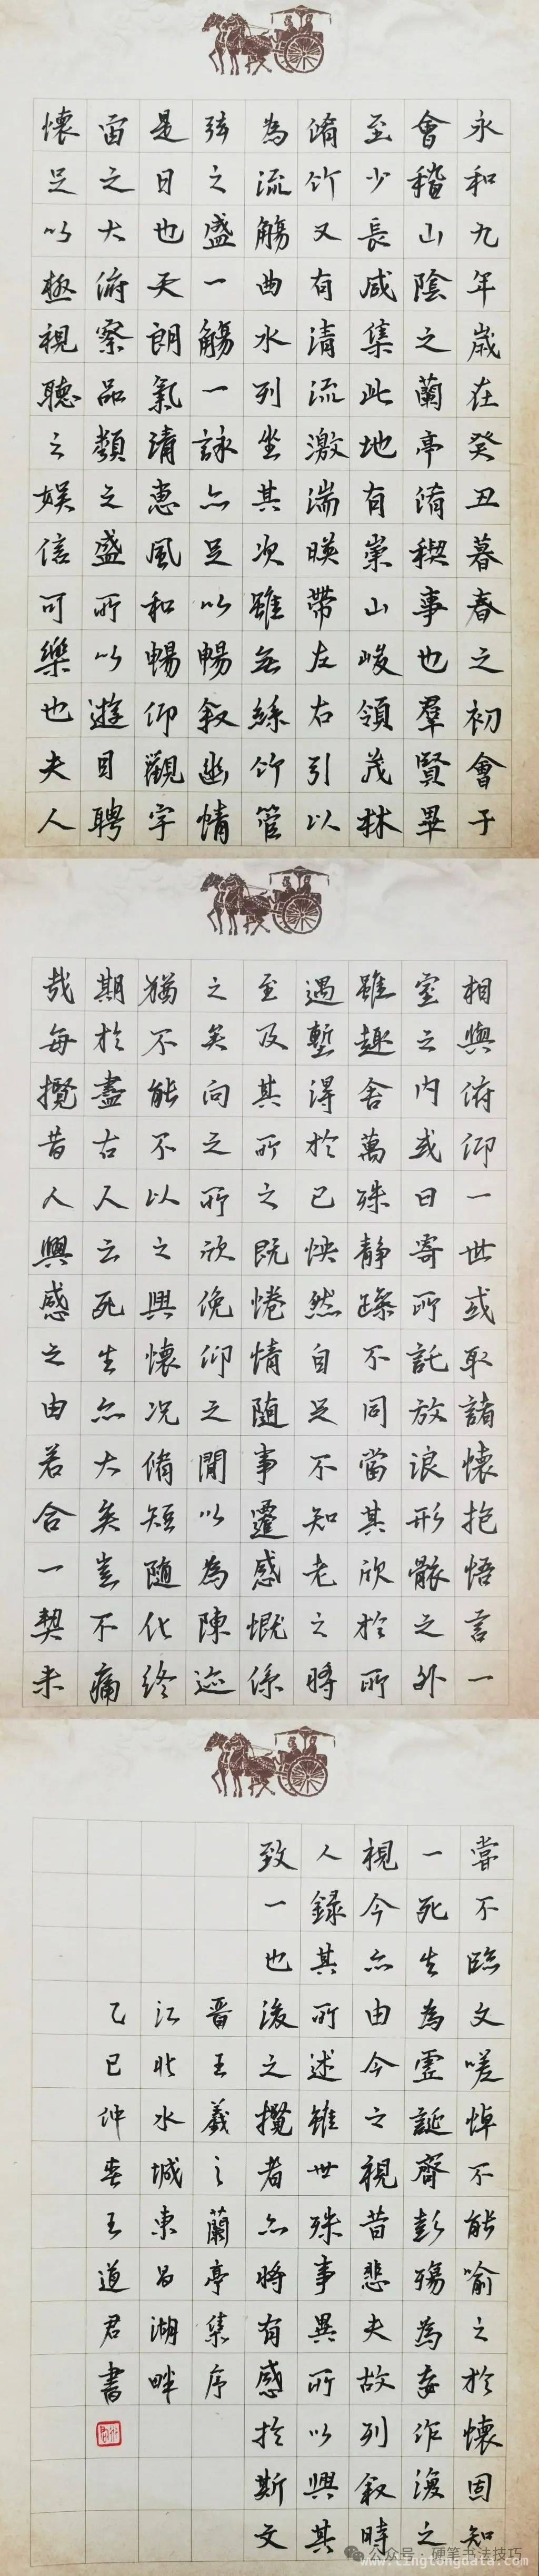 永和九年歲在癸丑暮春之初會于
會稽山陰之蘭亭脩稧事也羣賢畢
至少長咸集此地有崇山峻領茂林
脩竹又有清流激湍暎帶左右引以
為流觴曲水列坐其次雖無絲竹管
弦之盛一觴一詠亦足以暢叙幽情
是日也天朗氣清惠風和暢仰觀宇
宙之大俯察品類之盛所以遊目騁
懷足以極視聽之娛信可樂也夫人
相與俯仰一世或取諸懷抱悟言一
室之內或曰寄所託放浪形骸之外
雖趣舍萬殊靜躁不同當其欣於所
遇蹔得於己怏然自足不知老之將
至及其所之既惓情隨事遷感慨係
之矣向之所欣俛仰之閒以為陳迹
猶不能不以之興懷況脩短隨化終
期於盡古人云死生亦大矣豈不痛
哉每攬昔人興感之由若合一契未
嘗不臨文嗟悼不能喻之於懷固知
一死生為虛誕齊彭殤為妄作後之
視今亦由今之視昔悲夫故列叙時
人録其所述雖世殊事異所以興其
致一也後之攬者亦將有感於斯文
晉王羲之蘭亭集序
江北水城東昌湖畔
乙巳仲春王道君書
公众号·硬笔书法技巧
www.lingtongdata.com